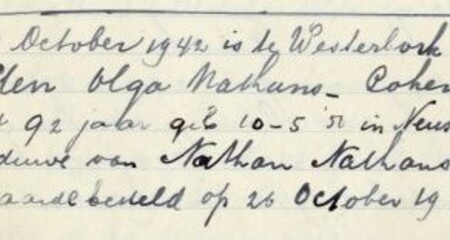 October 1942 is te Westerbork
den Olga Nathans- Cohen
92 jaar geb 10-5 '51 in Neus
duwe van Nathan Nathans
aarde besteld op 26 October 19